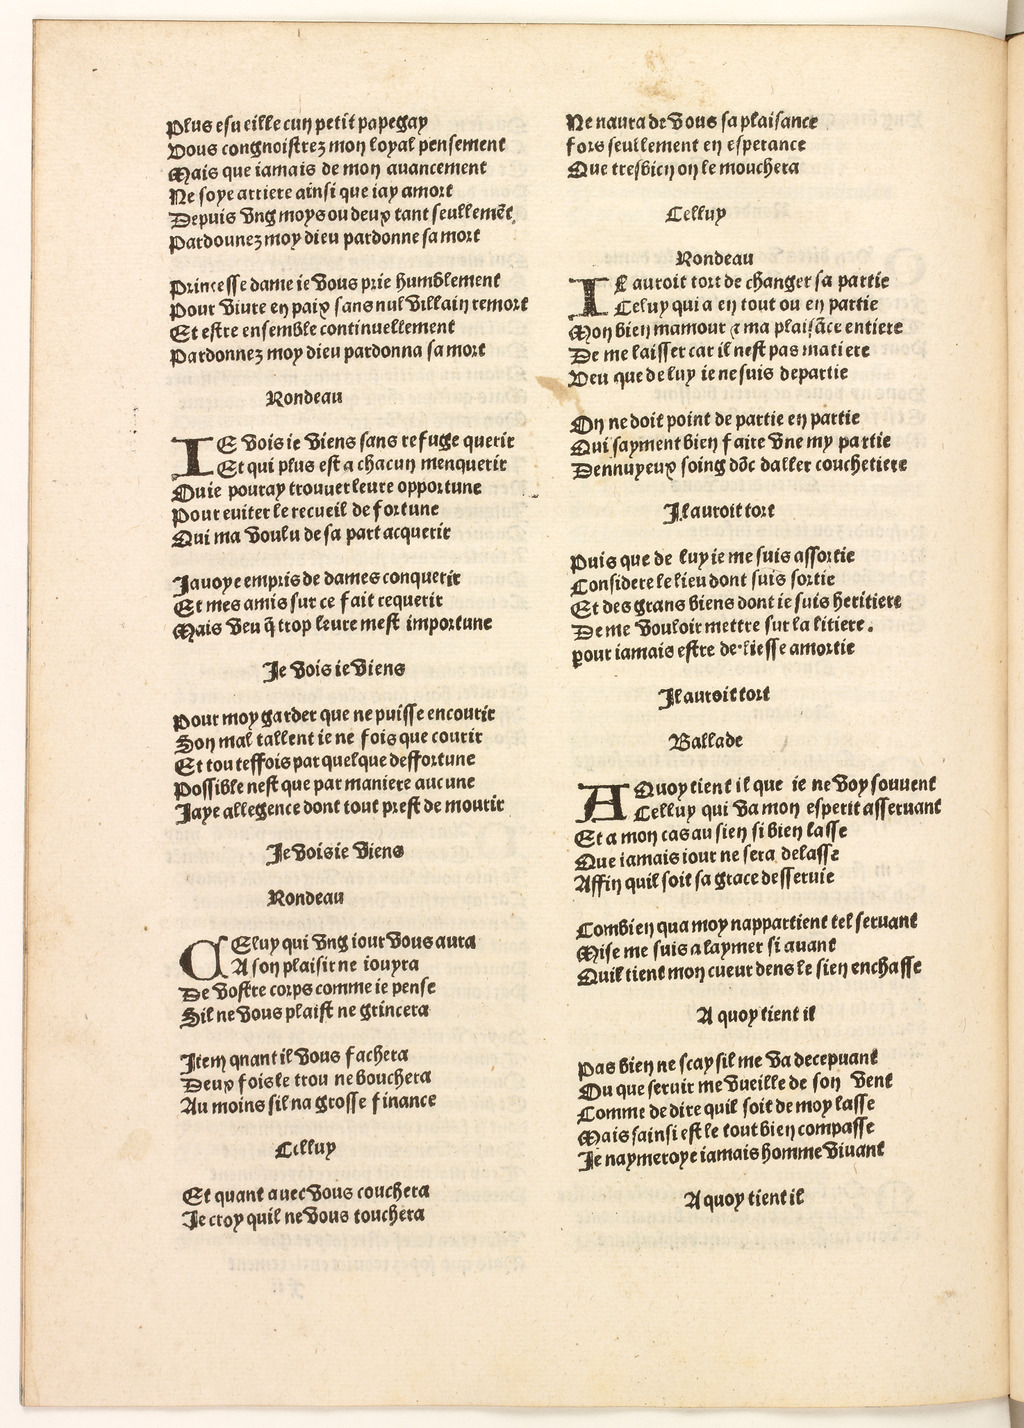 Plus esueille cun petit papegay
Vous congnoistrez mon loyal pensement
Mais que iamais de mon auancement
Ne soye arriere ainsi que iay amort
Depuis vng moys ou deux tant seullemēt
Pardounez moy dieu pardonne sa mort
Princesse dame ie vous prie humblement
Pour viure en paix sans nul villain remort
Et estre ensemble continuellement
Pardonnez moy dieu pardonna sa mort
Rondeau
IE vois ie viens sans refuge querir
Et qui plus est a chacun menquerir
Ou ie pouray trouuer leure opportune
Pour euiter le recueil de fortune
Qui ma voulu de sa part acquerir
Jauoye empris de dames conquerir
Et mes amis sur ce fait requerir
Mais veu q̄ trop leure mest importune
Je vois ie viens
Pour moy garder que ne puisse encourir
Son mal tallent ie ne fois que courir
Et touteffois par quelque deffortune
Possible nest que par maniere aucune
Jaye allegence dont tout prest de mourir
Je vois ie viens
Rondeau
CEluy qui vng iour vous aura
A son plaisir ne iouyra
De vostre corps comme ie pense
Sil ne vous plaist ne grincera
Item qnant il vous fachera
Deux fois le trou ne bouchera
Au moins sil na grosse finance
Celluy
Et quant auec vous couchera
Je croy quil ne vous touchera
Ne naura de vous sa plaisance
fors seullement en esperance
Que tresbien on le mouchera
Celluy
Rondeau
IL auroit tort de changer sa partie
Celuy qui a en tout ou en partie
Mon bien mamour ⁊ ma plaisāce entiere
De me laisser car il nest pas matiere
Veu que de luy ie ne suis departie
On ne doit point de partie en partie
Qui sayment bien faire vne my partie
Dennuyeux soing dōc daller couchetiere
Il auroit tort
Puis que de luy ie me suis assortie
Considere le lieu dont suis sortie
Et des grans biens dont ie suis heritiere
De me vouloir mettre sur la litiere.
pour iamais estre de liesse amortie
Il auroit tort
Ballade
AQuoy tient il que ie ne voy souuent
Celluy qui va mon esperit asseruant
Et a mon cas au sien si bien lasse
Que iamais iour ne sera delasse
Affin quil soit sa grace desseruie
Combien qua moy nappartient tel seruant
Mise me suis a laymer si auant
Quil tient mon cueur dens le sien enchasse
A quoy tient il
Pas bien ne scay sil me va deceupuant
Ou que seruir me vueille de son vent
Comme de dire quil soit de moy lasse
Mais sainsi est le tout bien compasse
Je naymeroye iamais homme viuant
A quoy tient il